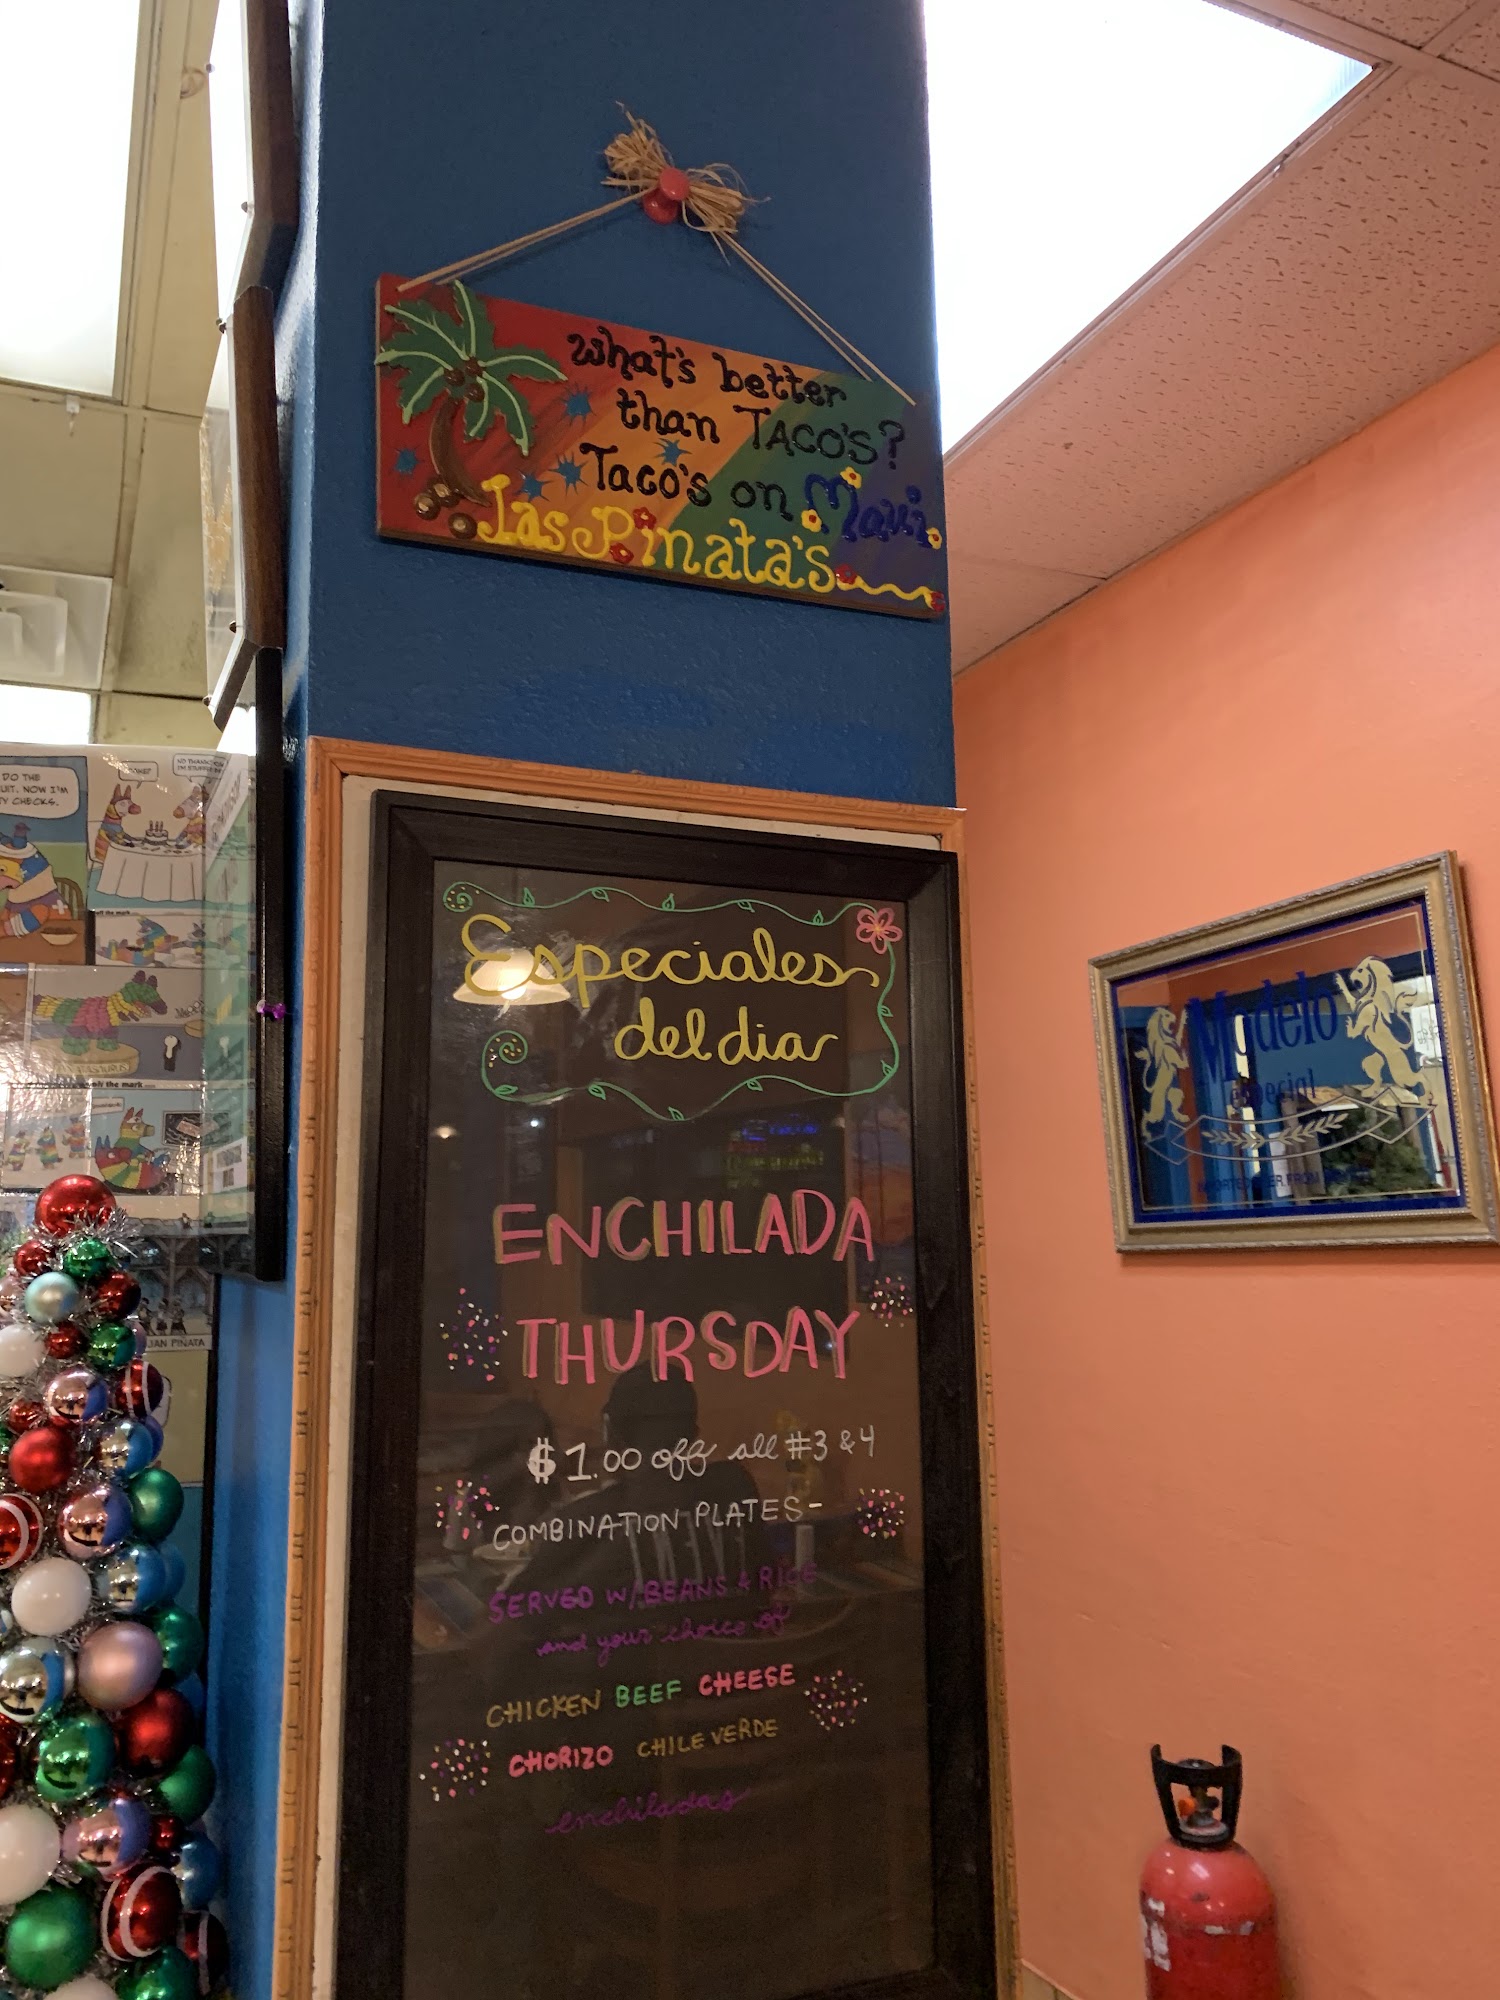 what's better
than TACO'S?
Taco's on Maui
Las Pinata's
DO THE
UIT. NOW I'M
Y CHECKS.
NO THANKS,
I'M STUFFED
Especiales
del dia
ENCHILADA
THURSDAY
$1.00 off all #3 & 4
COMBINATION PLATES-
SERVED W/BEANS & RICE
and your choice of
CHICKEN BEEF CHEESE
CHORIZO CHILE VERDE
enchiladas
Modelo
especial
off the mark
JAN PIÑATA